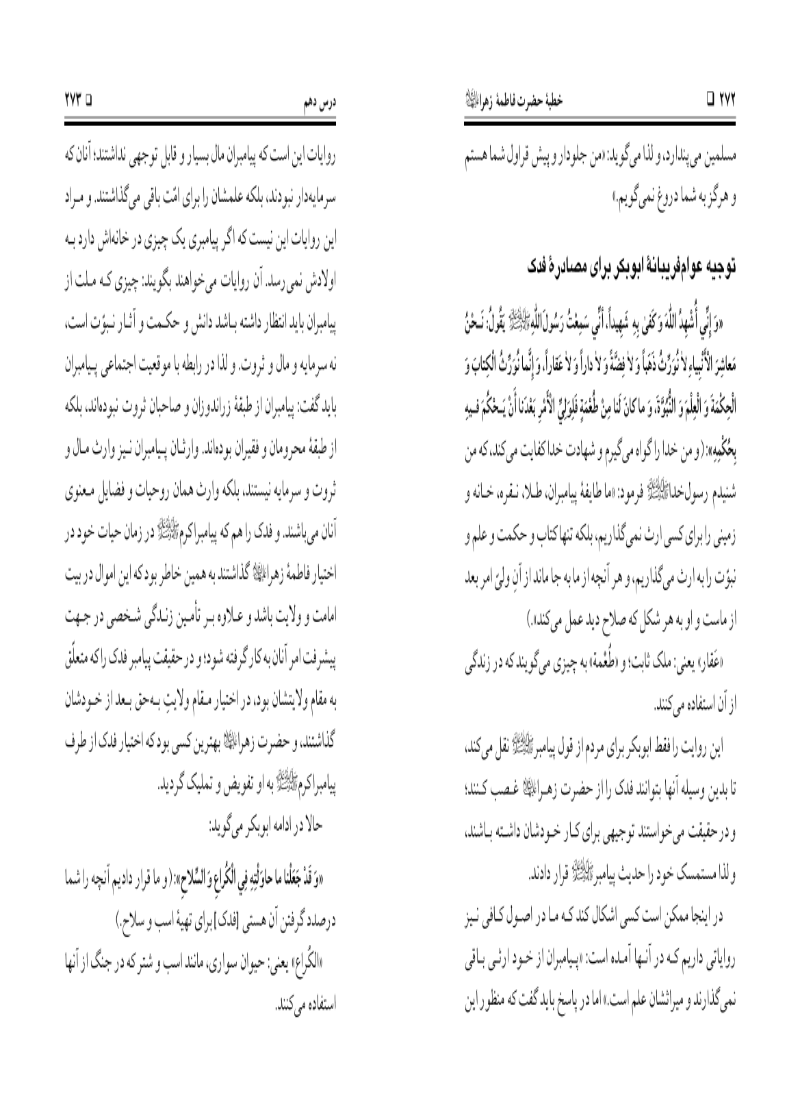 ۲۷۲ ❑ خطبهٔ حضرت فاطمهٔ زهرا
مسلمین می‌پندارد، و لذا می‌گوید: «من جلودار و پیش قراول شما هستم
و هرگز به شما دروغ نمی‌گویم.»
توجیه عوام‌فریبانهٔ ابوبکر برای مصادرهٔ فدک
«وَ إِنِّي أُشْهِدُ اللّٰهَ وَ كَفىٰ بِهِ شَهِيداً، أَنِّي سَمِعْتُ رَسُولَ اللّٰهِ ﷺ يَقُولُ: نَحْنُ
مَعاشِرَ الْأَنْبِياءِ لاٰ نُوَرِّثُ ذَهَباً وَ لاٰ فِضَّةً وَ لاٰ داراً وَ لاٰ عَقاراً، وَ إِنَّما نُوَرِّثُ الْكِتابَ وَ
الْحِكْمَةَ وَ الْعِلْمَ وَ النُّبُوَّةَ، وَ ما كانَ لَنا مِنْ طُعْمَةٍ فَلِوَلِيِّ الْأَمْرِ بَعْدَنا أَنْ يَحْكُمَ فيهِ
بِحُكْمِهِ»: (و من خدا را گواه می‌گیرم و شهادت خدا کفایت می‌کند، که من
شنیدم رسول‌خدا ﷺ فرمود: «ما طایفهٔ پیامبران، طلا، نقره، خانه و
زمینی را برای کسی ارث نمی‌گذاریم، بلکه تنها کتاب و حکمت و علم و
نبوّت را به ارث می‌گذاریم، و هر آنچه از ما به جا ماند از آنِ ولیّ امر بعد
از ماست و او به هر شکل که صلاح دید عمل می‌کند».)
«عَقار» یعنی: ملک ثابت؛ و «طُعْمة» به چیزی می‌گویند که در زندگی
از آن استفاده می‌کنند.
این روایت را فقط ابوبکر برای مردم از قول پیامبر ﷺ نقل می‌کند،
تا بدین وسیله آنها بتوانند فدک را از حضرت زهرا غصب کنند؛
و در حقیقت می‌خواستند توجیهی برای کار خودشان داشته باشند،
و لذا مستمسک خود را حدیث پیامبر ﷺ قرار دادند.
در اینجا ممکن است کسی اشکال کند که ما در اصول کافی نیز
روایاتی داریم که در آنها آمده است: «پیامبران از خود ارثی باقی
نمی‌گذارند و میراثشان علم است.» اما در پاسخ باید گفت که منظور این
درس دهم ❑ ۲۷۳
روایات این است که پیامبران مال بسیار و قابل توجهی نداشتند؛ آنان که
سرمایه‌دار نبودند، بلکه علمشان را برای امّت باقی می‌گذاشتند. و مراد
این روایات این نیست که اگر پیامبری یک چیزی در خانه‌اش دارد به
اولادش نمی‌رسد. آن روایات می‌خواهند بگویند: چیزی که ملت از
پیامبران باید انتظار داشته باشد دانش و حکمت و آثار نبوّت است،
نه سرمایه و مال و ثروت. و لذا در رابطه با موقعیت اجتماعی پیامبران
باید گفت: پیامبران از طبقهٔ زراندوزان و صاحبان ثروت نبوده‌اند، بلکه
از طبقهٔ محرومان و فقیران بوده‌اند. وارثان پیامبران نیز وارث مال و
ثروت و سرمایه نیستند، بلکه وارث همان روحیات و فضایل معنوی
آنان می‌باشند. و فدک را هم که پیامبراکرم ﷺ در زمان حیات خود در
اختیار فاطمهٔ زهرا گذاشتند به همین خاطر بود که این اموال در بیت
امامت و ولایت باشد و علاوه بر تأمین زندگی شخصی در جهت
پیشرفت امر آنان به کار گرفته شود؛ و در حقیقت پیامبر فدک را که متعلّق
به مقام ولایتشان بود، در اختیار مقام ولایتِ به‌حق بعد از خودشان
گذاشتند، و حضرت زهرا بهترین کسی بود که اختیار فدک از طرف
پیامبراکرم ﷺ به او تفویض و تملیک گردید.
حالا در ادامه ابوبکر می‌گوید:
«وَ قَدْ جَعَلْنا ما حاوَلْتِهِ فِي الْكُراعِ وَ السِّلاحِ»: (و ما قرار دادیم آنچه را شما
درصدد گرفتن آن هستی [فدک] برای تهیهٔ اسب و سلاح.)
«الکُراع» یعنی: حیوان سواری، مانند اسب و شتر که در جنگ از آنها
استفاده می‌کنند.